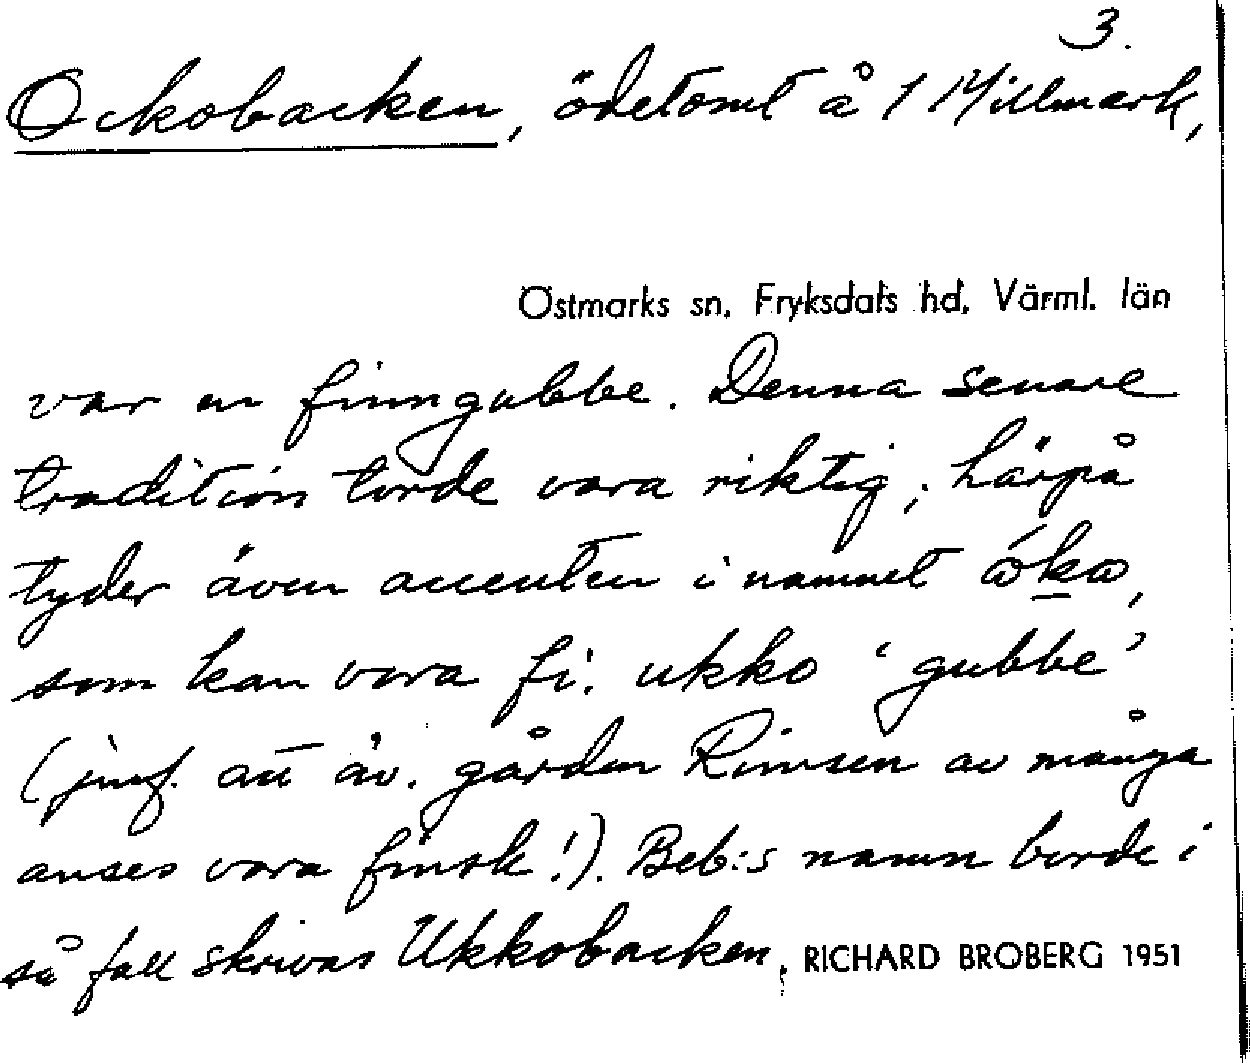 3.
Ockobacken, ödetomt å 1 Millmark,
Östmarks sn. Fryksdals hd. Värml. län
var en finngubbe. Denna senare
tradition torde vara riktig; härpå
tyder även accenten i namnet
som kan vara fi. ukko 'gubbe'
(jmf. att äv. gården Rimsen av många
anses vara finsk!). Beb:s namn borde i
så fall skrivas Ukkobacken. RICHARD BROBERG 1951